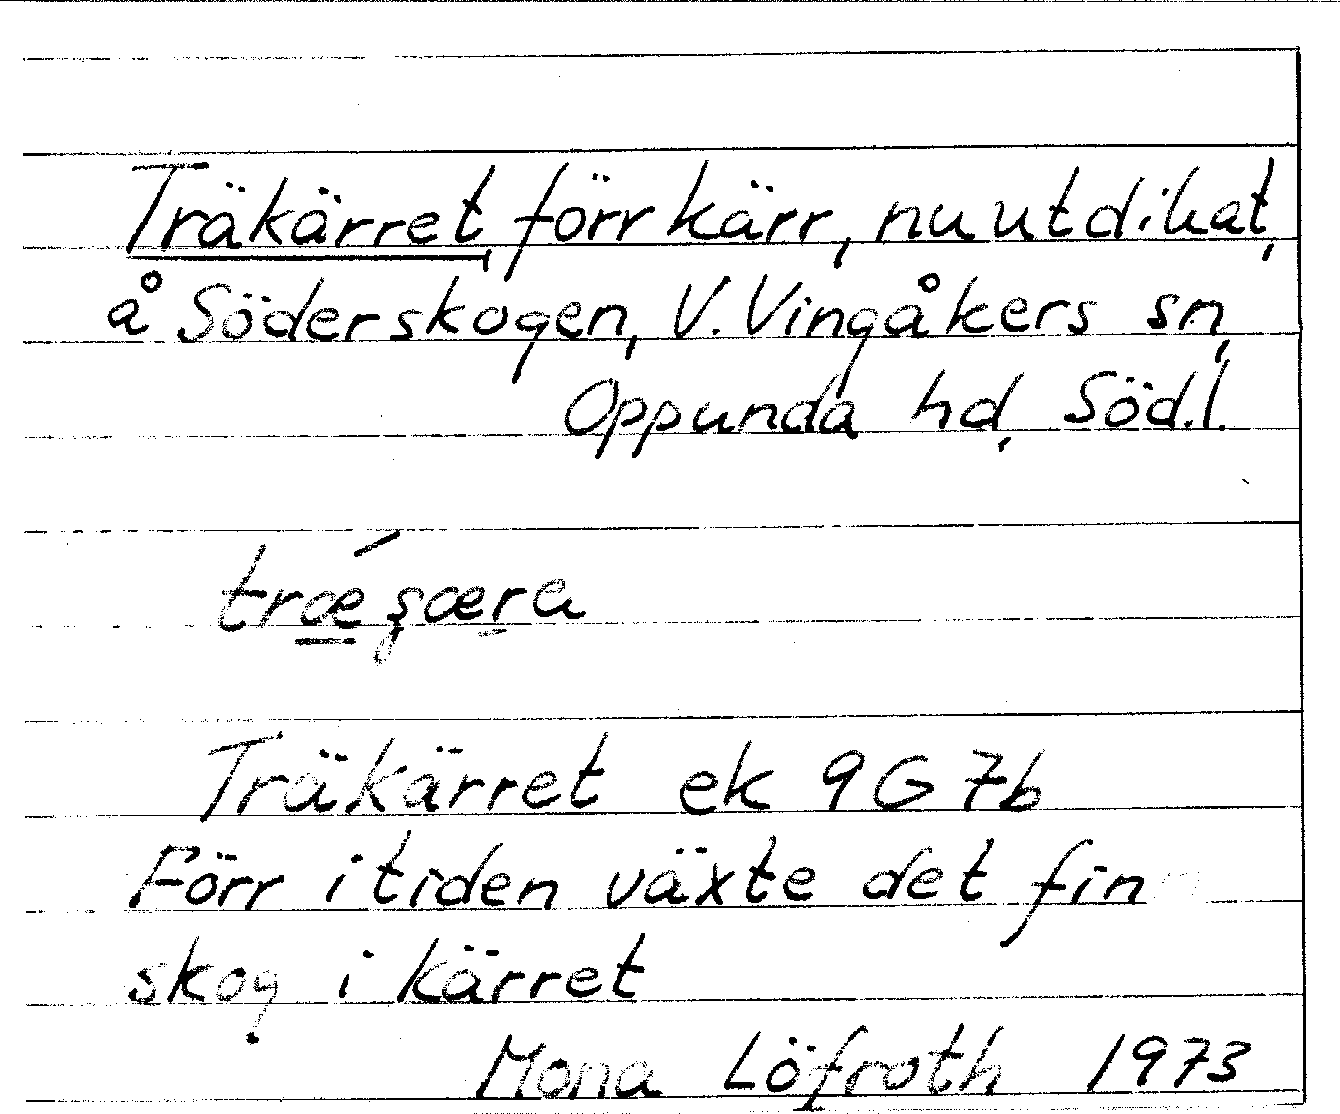 Träkärret, förr kärr, nu utdikat,
å Söderskogen, V. Vingåkers sn,
Oppunda hd, Söd.l.
Träkärret ek 9G7b
Förr i tiden växte det fin
skog i kärret
Mona Löfroth 1973